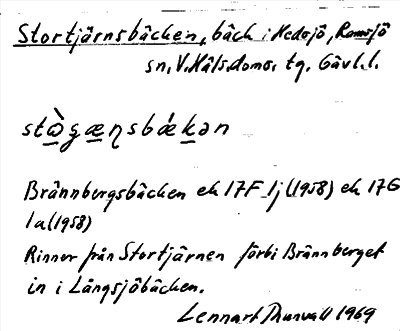 Stortjärnsbäcken, bäck i Hedsjö, Ramsjö
sn, V. Häls. doms. tg. Gävl. l.
stɷ̀ʒæɳsbǽkən
Brännbergsbäcken ek 17F 1j (1958) ek 17G
1a (1958)
Rinner från Stortjärnen förbi Brännberget
in i Långsjöbäcken.
Lennart Thunvall 1969